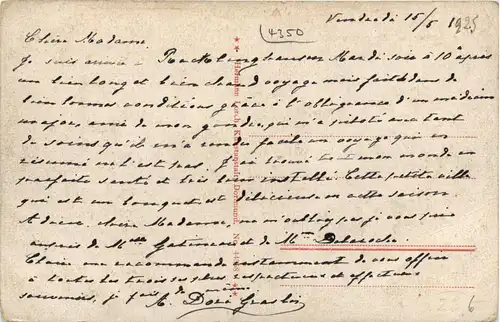 4350
Vendredi 15/5 1925
Chère Madame,
Je suis arrivée à Recklinghausen Mardi soir à 10h après
un bien long et bien chaud voyage mais fait dans de
bien bonnes conditions grâce à l'obligeance d'un médecin
major, ami de mon gendre, qui m'a pilotée avec tant
de soins qu'il m'a rendu facile un voyage qui en
résumé ne l'est pas. J'ai trouvé tout mon monde en
parfaite santé et très bien installé. Cette petite ville
qui est un bouquet est délicieuse en cette saison
Adieu, chère Madame, ne m'oubliez pas je vous prie
auprès de Melle Gatineau et de Mme Delaroche.
Claire me recommande instamment de vous offrir
à toutes les trois ses plus respectueux et affectueux
souvenirs, je fais de même
A. Doré Graslin
6
Verlag Dortmund Nr.